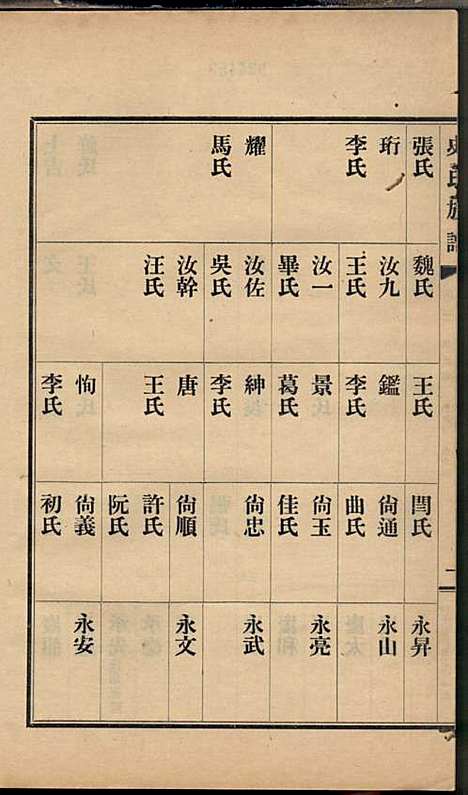 氏族譜
張氏
珩
李氏
耀
馬氏
魏氏
汝九
王氏
汝一
畢氏
汝佐
吳氏
汝幹
汪氏
王氏
鑑
李氏
景
葛氏
紳
李氏
唐
王氏
恂
李氏
閆氏
尙通
曲氏
尙玉
佳氏
尙忠
尙順
許氏
阮氏
尙義
初氏
永昇
永山
永亮
永武
永文
永安